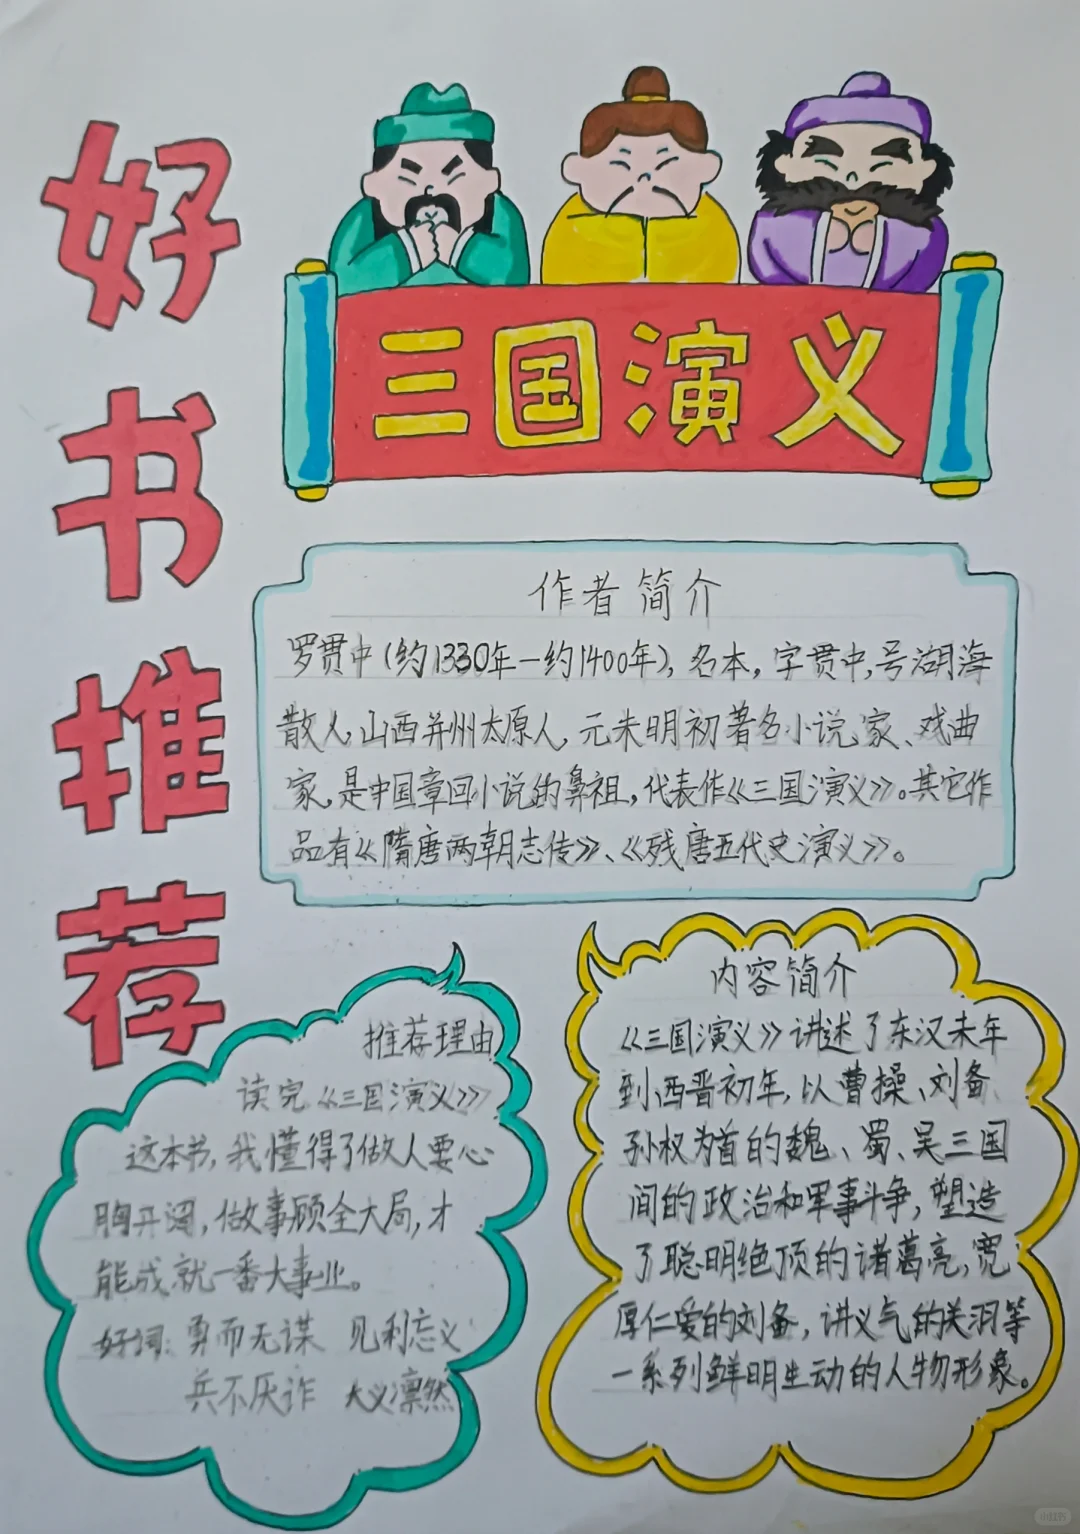 好书推荐
三国演义
作者简介
罗贯中(约1330年—约1400年),名本,字贯中,号湖海
散人,山西并州太原人,元末明初著名小说家、戏曲
家,是中国章回小说的鼻祖,代表作《三国演义》。其它作
品有《隋唐两朝志传》、《残唐五代史演义》。
推荐理由
读完《三国演义》
这本书,我懂得了做人要心
胸开阔,做事顾全大局,才
能成就一番大事业。
好词:勇而无谋 见利忘义
兵不厌诈 大义凛然
内容简介
《三国演义》讲述了东汉末年
到西晋初年,以曹操、刘备、
孙权为首的魏、蜀、吴三国
间的政治和军事斗争,塑造
了聪明绝顶的诸葛亮,宽
厚仁爱的刘备,讲义气的关羽等
一系列鲜明生动的人物形象。